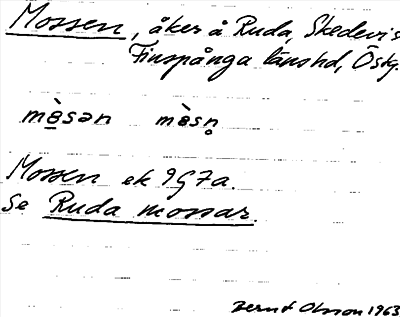 Mossen, åker å Ruda, Skedevis
Finspånga länshd, Östg.
mè̱sən mèsn̥
Mossen ek 9G7a.
Se Ruda mossar.
Bernt Olsson 1963